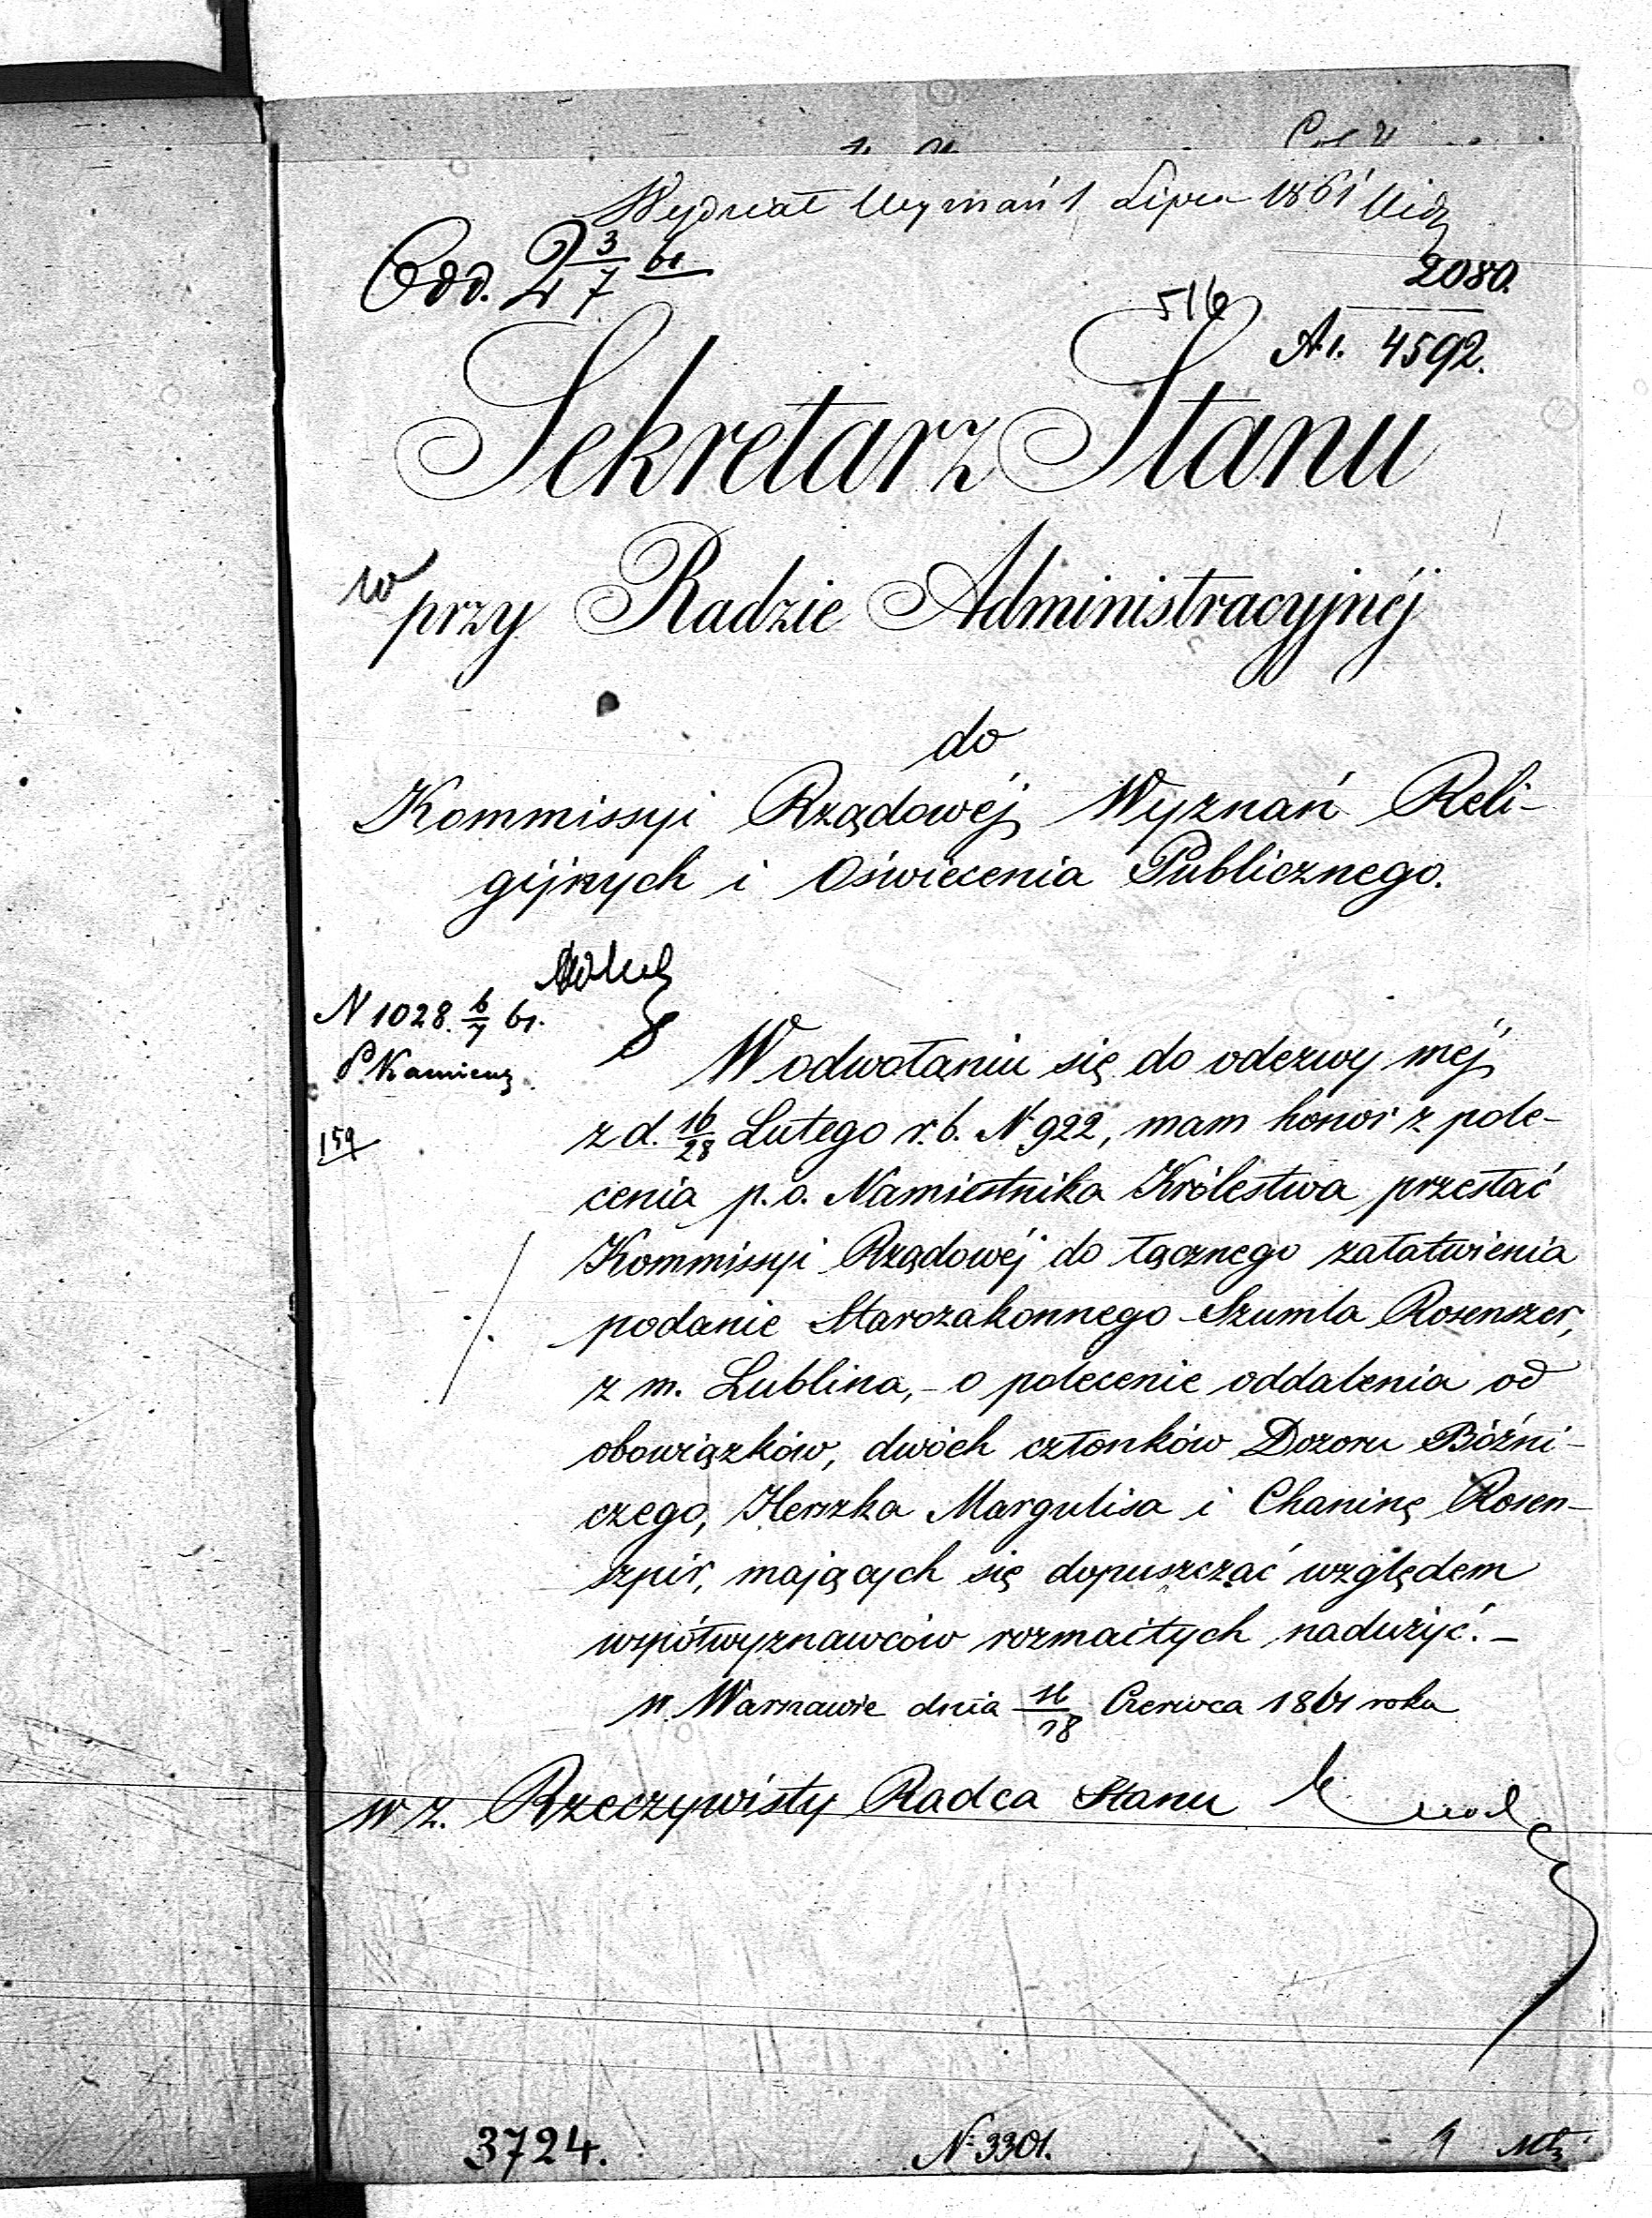 Wydział Wyznań 1 Lipca 1861
Odd. 2 3/7 61
2080.
516
A1. 4592.
Sekretarz Stanu
w przy Radzie Administracyjnéj
do
Kommissyi Rządowéj Wyznań Reli-
gijnych i Oświecenia Publicznego.
N 1028. 6/7 61.
159
W odwołaniu się do odezwy méj
z d. 16/28 Lutego r. b. N 922, mam honor z pole-
cenia p. o. Namiestnika Królestwa przesłać
Kommissyi Rządowéj do łącznego załatwienia
podanie Starozakonnego Szumla Rosenszer,
z m. Lublina, - o polecenie oddalenia od
obowiązków, dwóch członków Dozoru Bóźni-
czego, Herszka Margulisa i Chaninę Rosen-
szpir, mających się dopuszczać względem
współwyznawców rozmaitych nadużyć. -
w Warszawie dnia 16/28 Czerwca 1861 roku
w z. Rzeczywisty Radca Stanu
3724.
N 3301.